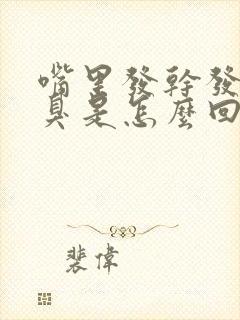 嘴里發幹發
臭是怎麼回
裴偉